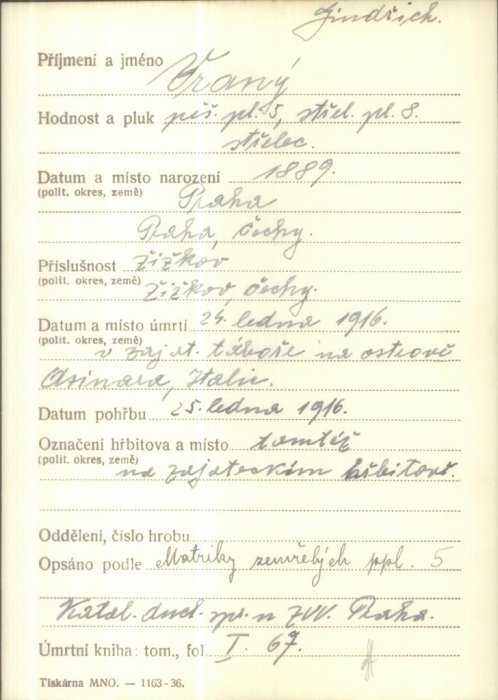 Jindřich.
Příjmení a jméno Vraný
Hodnost a pluk pěš. pl. 5, střel. pl. 8.
střelec.
Datum a místo narození 1889.
(polit. okres, země) Praha
Praha, Čechy.
Příslušnost Žižkov
(polit. okres, země) Žižkov, Čechy.
Datum a místo úmrtí 24. ledna 1916.
(polit. okres, země) v zajat. táboře na ostrově
Asinara, Italie.
Datum pohřbu 25. ledna 1916.
Označení hřbitova a místo tamtéž
(polit. okres, země) na zajateckém hřbitově.
Oddělení, číslo hrobu
Opsáno podle Matriky zemřelých ppl. 5
Katal. duch. spr. u ZVV. Praha.
Úmrtní kniha: tom., fol I. 67.
Tiskárna MNO. — 1163-36.